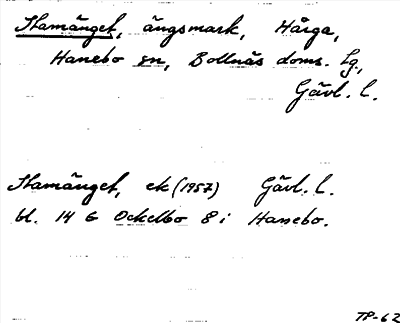 Hamänget, ängsmark, Hårga,
Hanebo sn, Bollnäs doms. lg.,
Gävl. l.
Hamänget, ek (1957) Gävl. l.
bl. 14 G Ockelbo 8 i Hanebo.
TP-62